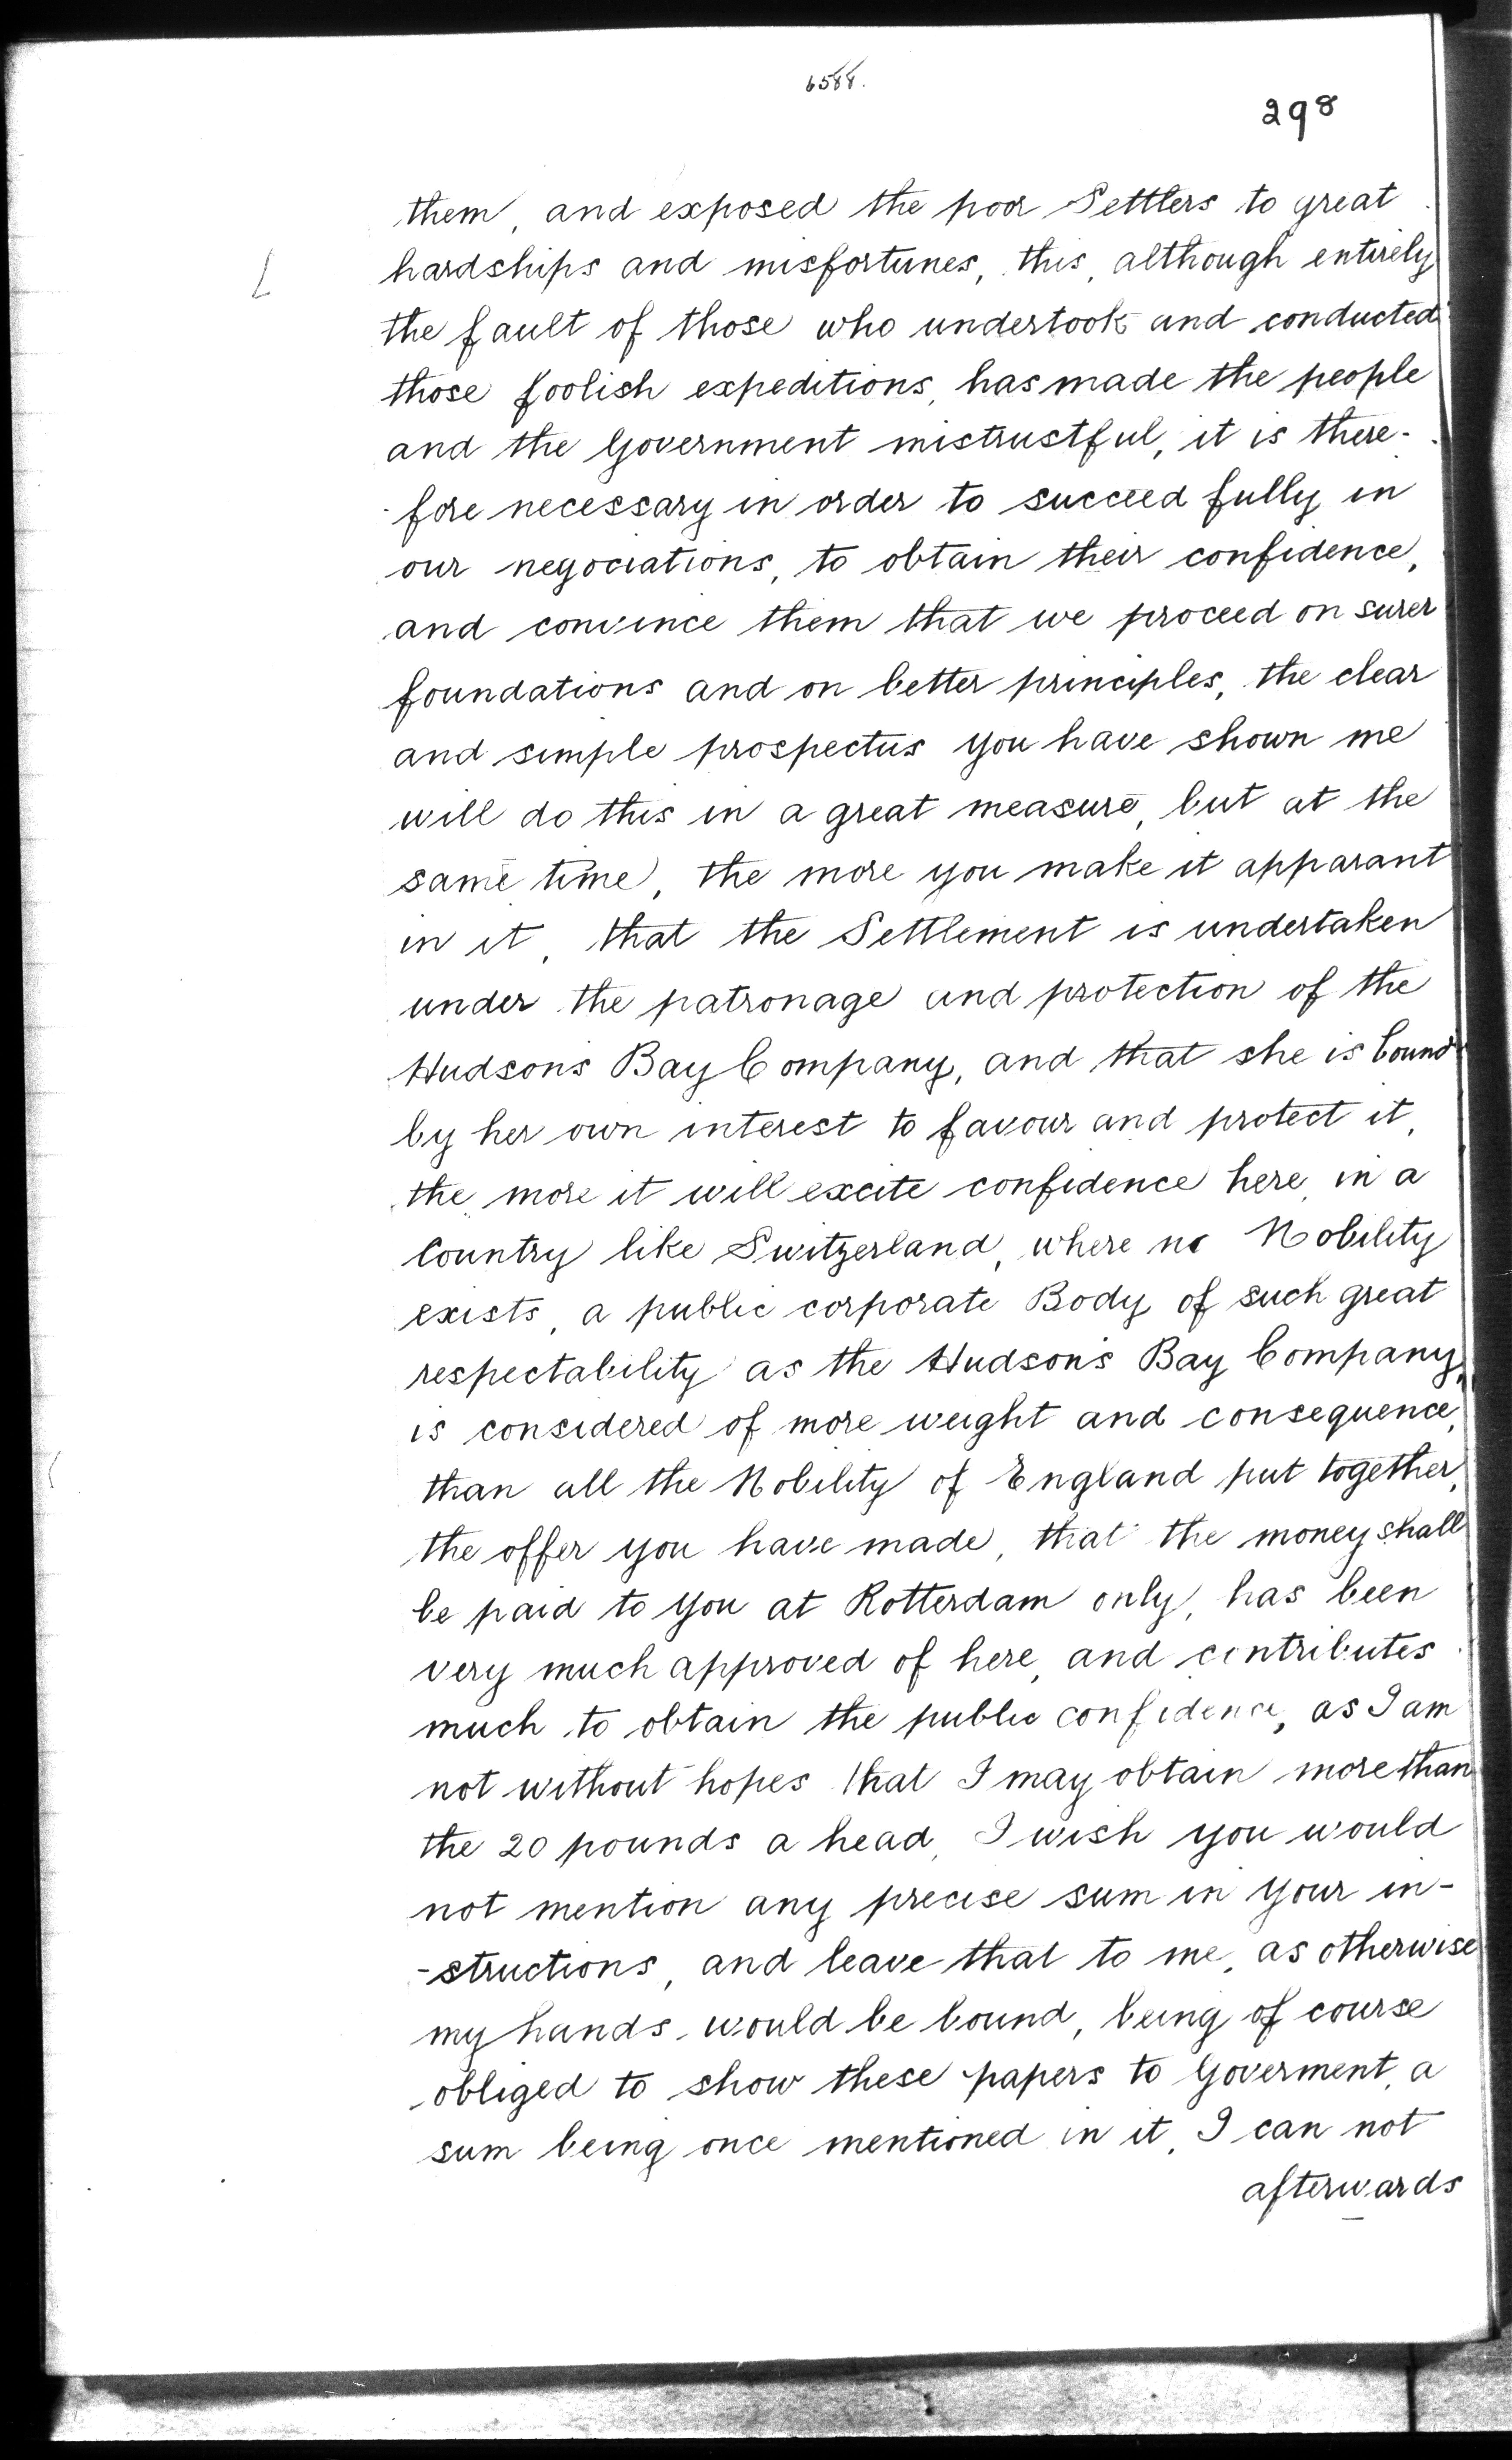 6588.
298
them, and exposed the poor Settlers to great
hardships and misfortunes, this, although entirely
the fault of those who undertook and conducted
those foolish expeditions, has made the people
and the Government mistrustful, it is there-
-fore necessary in order to succeed fully in
our negociations, to obtain their confidence,
and convince them that we proceed on surer
foundations and on better principles, the clear
and simple prospectus you have shown me
will do this in a great measure, but at the
same time, the more you make it apparant
in it, that the Settlement is undertaken
under the patronage and protection of the
Hudson's Bay Company, and that she is bound
by her own interest to favour and protect it,
the more it will excite confidence here, in a
Country like Switzerland, where no Nobility
exists, a public corporate Body of such great
respectability as the Hudson's Bay Company,
is considered of more weight and consequence,
than all the Nobility of England put together,
the offer you have made, that the money shall
be paid to you at Rotterdam only, has been
very much approved of here, and contributes
much to obtain the public confidence, as I am
not without hopes that I may obtain more than
the 20 pounds a head, I wish you would
not mention any precise sum in your in-
-structions, and leave that to me, as otherwise
my hands would be bound, being of course
obliged to show these papers to Goverment, a
sum being once mentioned in it, I can not
afterwards